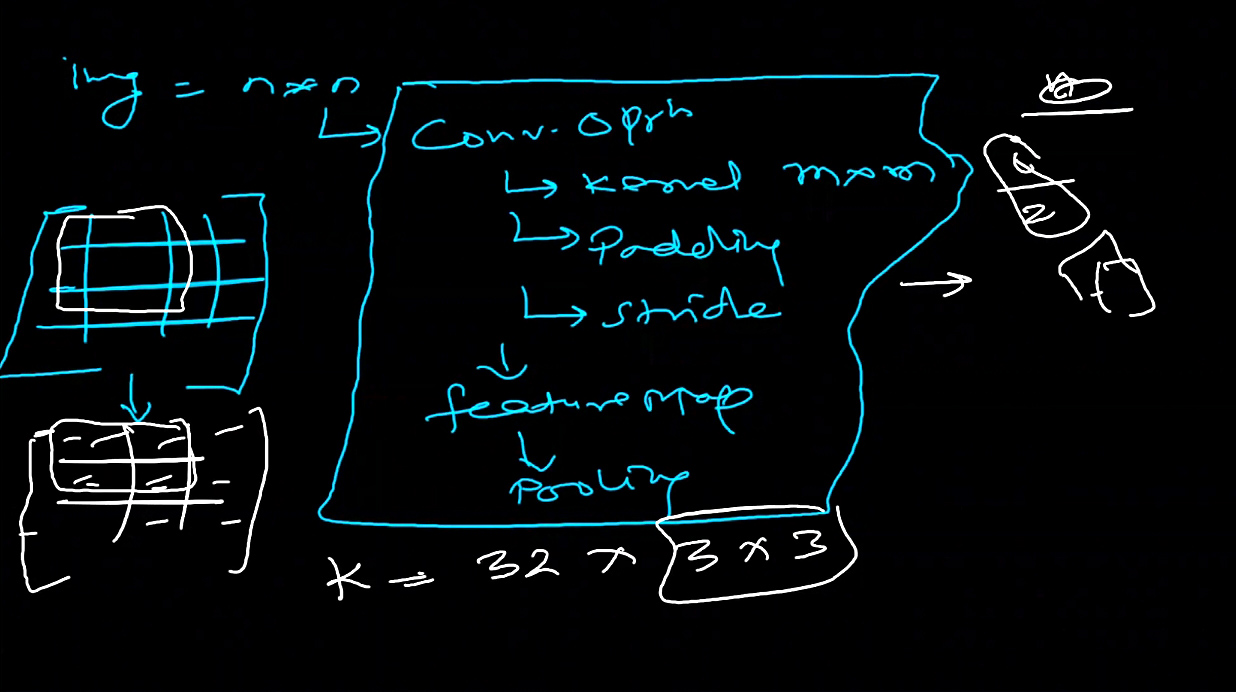 img = n×n
Conv. Oprn
↳ Kernel m×m
↳ Padding
↳ Stride
↓
feature Map
↓
Pooling
K = 32 × 3 × 3
2